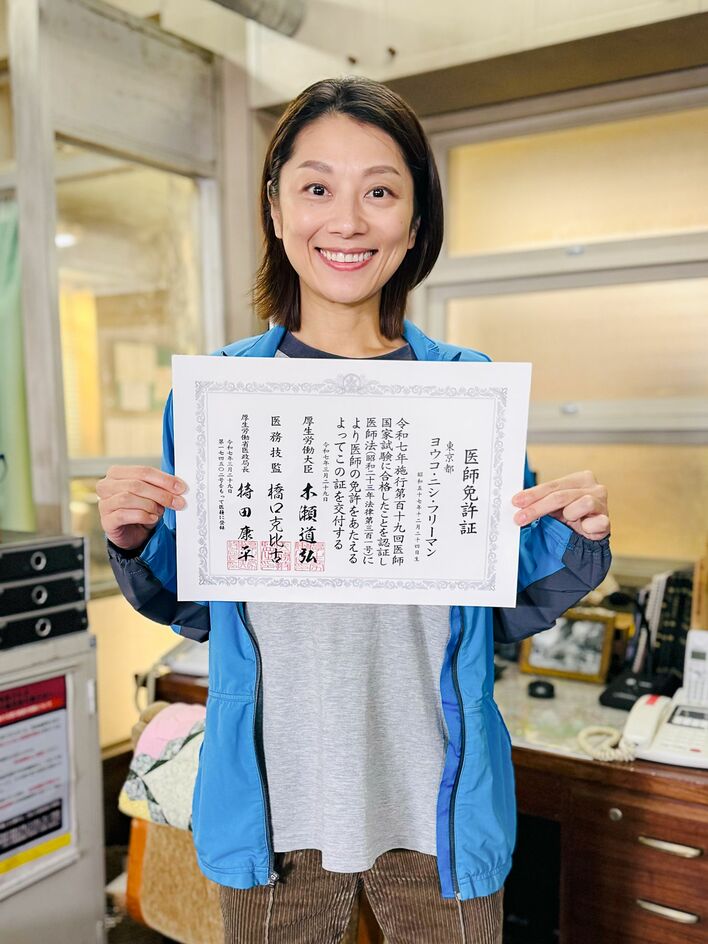 医師免許証
東京都
ヨウコ・ニシ・フリーマン
昭和五十七年十二月二十四日生
令和七年施行第百十九回医師
国家試験に合格したことを認証し
医師法(昭和二十三年法律第三百一号)に
より医師の免許をあたえる
よってこの証を交付する
令和七年三月二十九日
厚生労働大臣 木瀬道弘
医務技監 橋口克比古
令和七年三月二十九日
第一七四五〇二号をもって医籍に登録
厚生労働省医政局長 持田康平